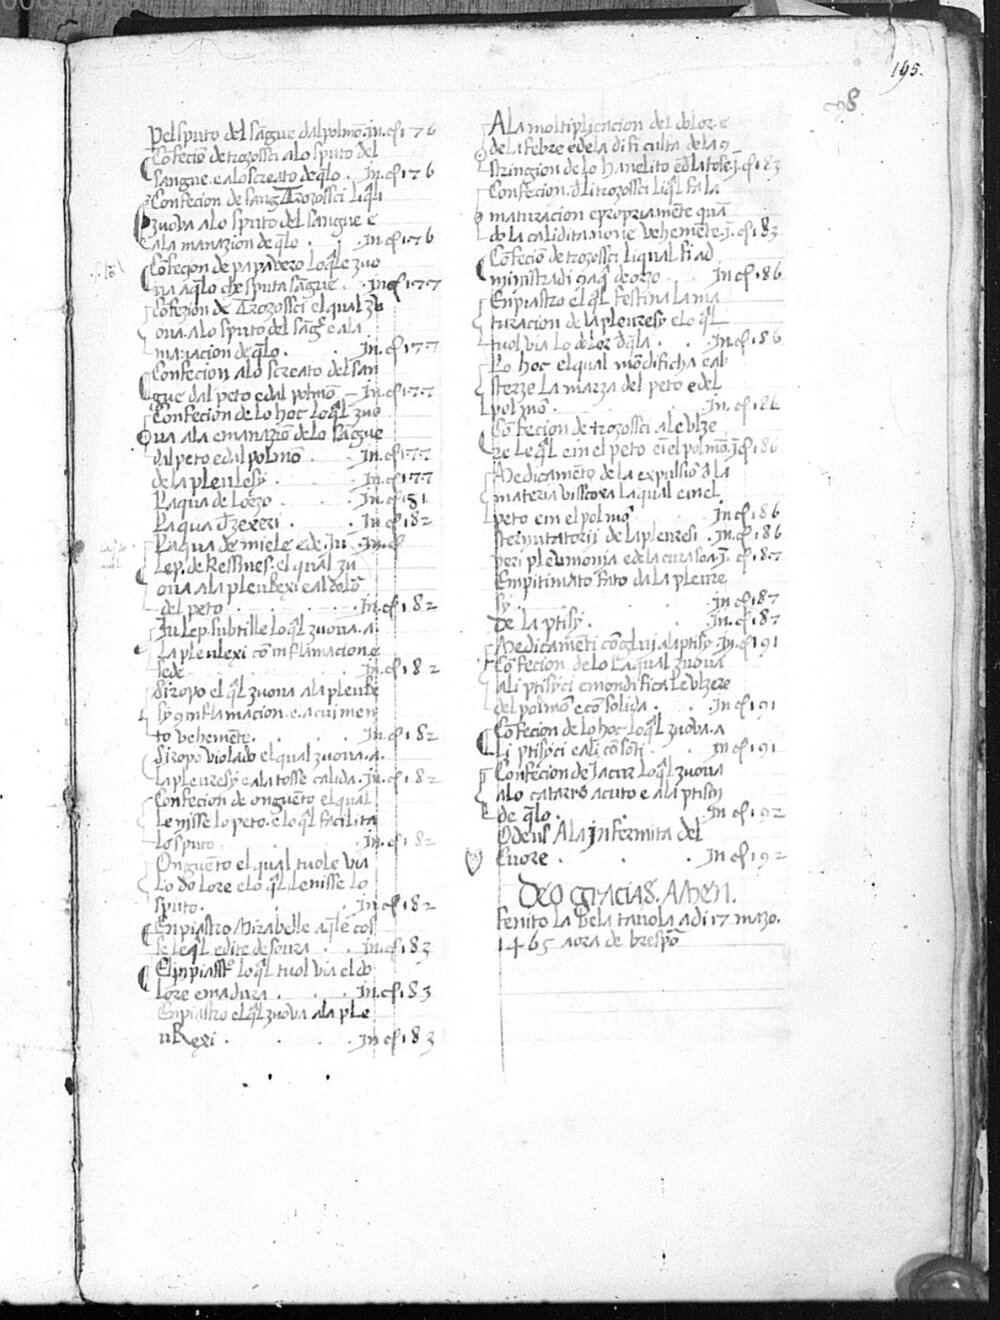 195.
98
Del sputo del sãgue dal polmõ. In. cͨ 176
Cõfeciõ de trozossci alo sputo del
sangue. e alo screato de q̃lo . In. cͨ 176
Confecion de sang Trozossci liq̃li
zuova alo sputo del sangue e
ala manazion de q̃lo . . . In cͨ 176
Cõfecion de papavero loq̃le zuo
va aq̃lo che sputa sãgue . In cͨ 177
Cofezion de Trozossci el qual zu
ova. alo sputo del sãgͤ e ala
manacion de q̃lo . . In. cͨ 177
Confecion alo screato del san
gue dal peto e dal polmõ _ In. cͨ 177
Confecion de lo hoc loq̃l zuo
va ala emanaziõ de lo sãgue
dal peto e dal polmõ . . In. cͨ 177
de la plevlesy . . In. cͨ 177
Laqua de lorzo . . In. cͨ 181
Laqua d zexeri . . In cͨ 182
Laqua de miele e de. Iu . In cͨ
lep. de
ova ala plevrexi e al dolõ
del peto . . . . In. cͨ 182
Iulep. subtille loq̃l zuova. a.
la plevlexi cõ inflamacion. e
sede . . . . In. cͨ 182
Siropo el q̃l zuova ala plevre
sy 9 inflamacion. e acuimen
to vehemẽte. . . . In. cͨ 182
Siropo violado el qual zuova. a.
la plevresy e ala tosse calida. In. cͨ 182
Confecion de onguẽto el qual
lenisse lo peto. e loq̃l facilita
lo sputo . . . . In. cͨ 182
Onguẽto el qual tuole via
lo dolore e lo q̃l lenisse lo
sputo. . . . In. cͨ 182
Enpiastro Mirabelle a q̃le cos
se leq̃l e dite de soura . . In. cͨ 183
Elpiastͦ loq̃l tuol via el do
lore e madura . . . In. cͨ 183
Enpiastro el q̃l zuova ala ple
uRexi . . . . In cͨ 183
A La moltiplicacion del dolor. e
de la febre e de la dificulta de la 9_
stringion de lo hanelito e d la tose. I. cͨ 183
Confecion. d li trozossci liq̃l fa la
maturacion e propriamẽte quã
do la calidita non e vehemẽte. I. cͨ 183
Cõfeciõ de trozossci liqual fi ad
ministradi 9 aq̃ de orzo . . In cͨ 186
Enpiastro el q̃l festina la ma
turacion de la plevresy e lo q̃l
tuol via lo dolor d q̃la . . . In. cͨ 186
Lo hoc el qual mõdificha e ab
sterze la marza del peto e del
polmõ . . . . In. cͨ 186
Cõfecion de trozossci a le vlze
re le q̃l e in el peto e in el polmõ. I cͨ 186
Medicamẽto de la expulsiõ d la
materia visscoxa la qual e in el
peto e in el polmõ . . In cͨ 186
sternutatorii de la plevresi . In. cͨ 186
peri plevmonia e de la cura soa. I. cͨ 187
Empitimato fato da la plevre
sy . . . . In cͨ 187
De la ptisy . . . In. cͨ 187
Medicamẽti ala ptisy. In. cͨ 191
Cõfecion de lo la qual zuova
ali ptisyci e mondifica le vlzere
del polmõ e cõsolida . . . In cͨ 191
Cõfecion de lo hoc loq̃l zuova. a
li ptisyci e ali . . In cͨ 191
Cõfecion de loq̃l zuova
alo catarro acuto e ala ptison
de q̃lo. . . . In cͨ 192
Odeus A la Infermita del
Cuore . . . In cͨ 192
Deo gracias. Amen.
Fenito la Bela tavola a di 17 mazo.
1465 a ora de brespõ